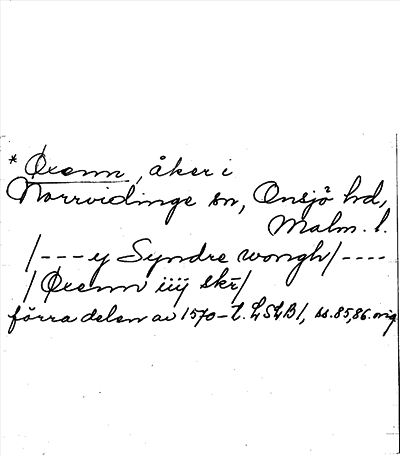 * Øxenn, åker i
Norrvidinge sn, Onsjö hd,
Malm. l.
/---y Syndre wongh/----
/Øxenn iiij skr̄/
förra delen av 1570-t. LSLB1, ss.85,86. orig